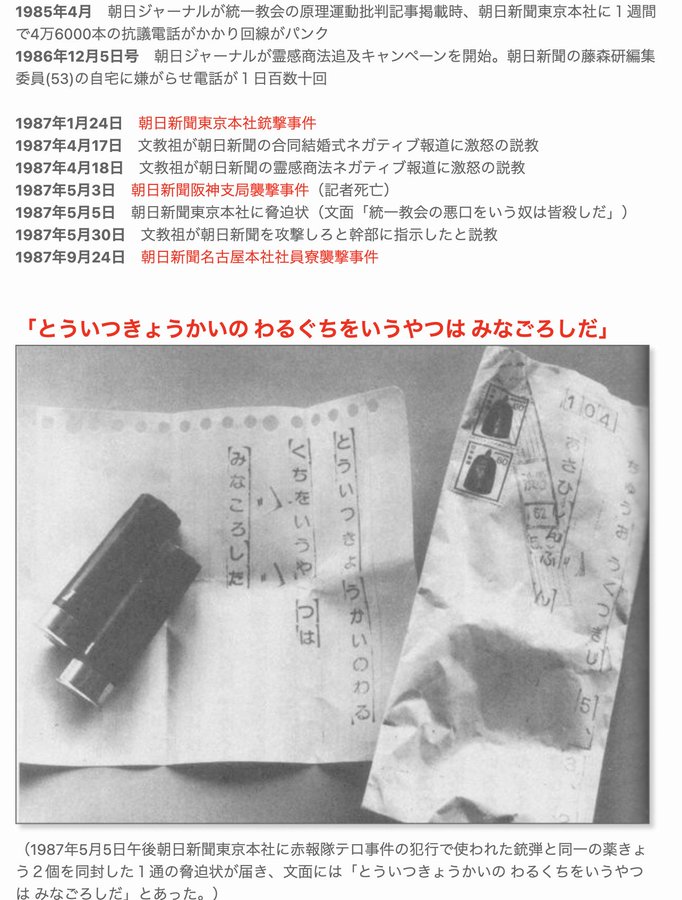 1985年4月　朝日ジャーナルが統一教会の原理運動批判記事掲載時、朝日新聞東京本社に１週間
で4万6000本の抗議電話がかかり回線がパンク
1986年12月5日号　朝日ジャーナルが霊感商法追及キャンペーンを開始。朝日新聞の藤森研編集
委員(53)の自宅に嫌がらせ電話が１日百数十回
1987年1月24日　朝日新聞東京本社銃撃事件
1987年4月17日　文教祖が朝日新聞の合同結婚式ネガティブ報道に激怒の説教
1987年4月18日　文教祖が朝日新聞の霊感商法ネガティブ報道に激怒の説教
1987年5月3日　朝日新聞阪神支局襲撃事件（記者死亡）
1987年5月5日　朝日新聞東京本社に脅迫状（文面「統一教会の悪口をいう奴は皆殺しだ」）
1987年5月30日　文教祖が朝日新聞を攻撃しろと幹部に指示したと説教
1987年9月24日　朝日新聞名古屋本社社員寮襲撃事件
「とういつきょうかいの わるぐちをいうやつは みなごろしだ」
とういつきょうかいのわる
くちをいうやつは
みなころした
104
あさひしんぶん
ちゅうおうくつきじ
5
60
60
62
（1987年5月5日午後朝日新聞東京本社に赤報隊テロ事件の犯行で使われた銃弾と同一の薬きょ
う２個を同封した１通の脅迫状が届き、文面には「とういつきょうかいの わるくちをいうやつ
は みなごろしだ」とあった。）